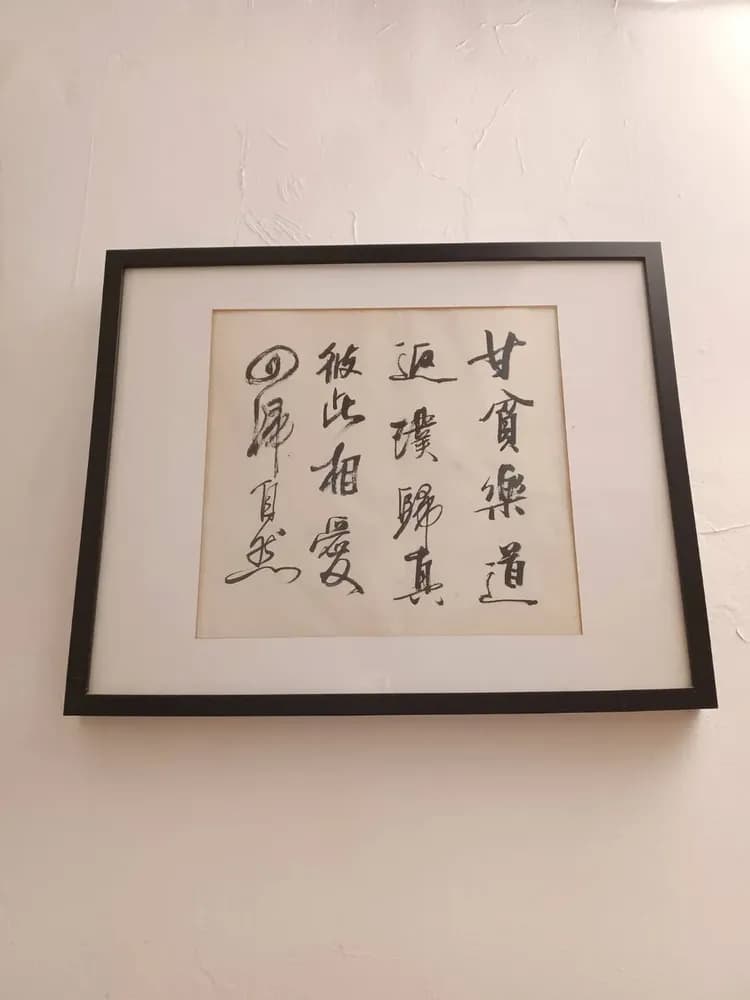 甘貧樂道
返璞歸真
彼此相愛
回歸自然